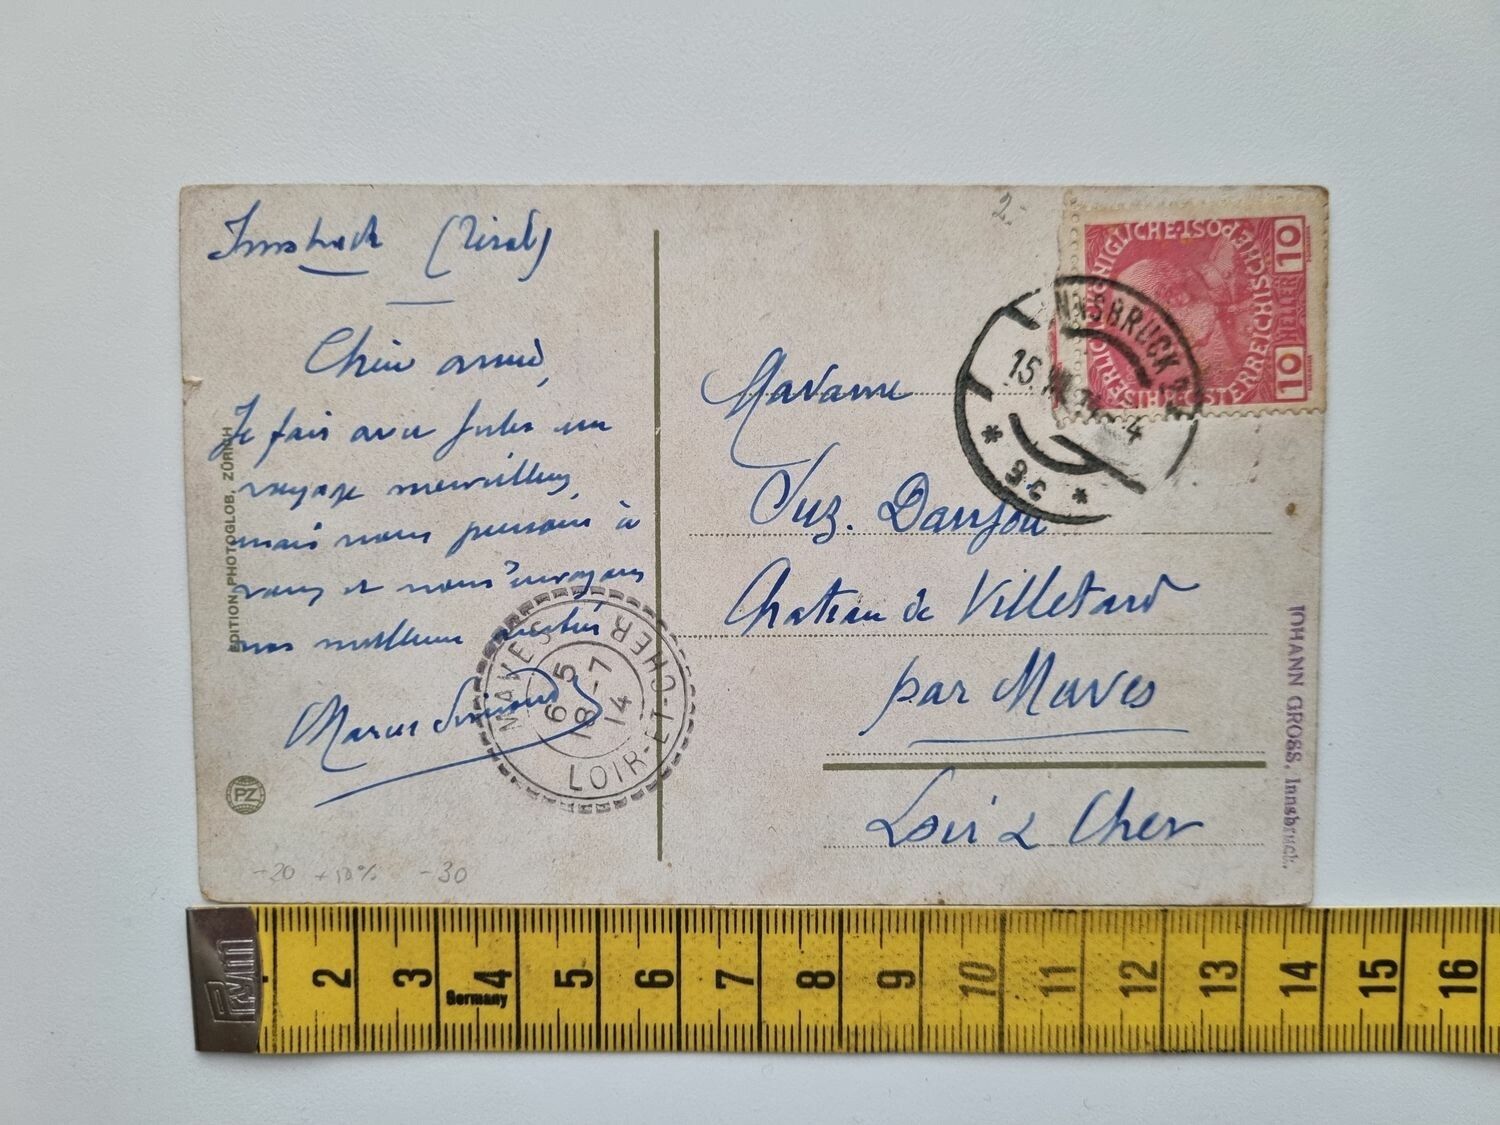 Innsbruck (Tirol)
Chère amie,
Je fais avec Jules un
voyage merveilleux,
mais nous pensons à
vous et nous envoyons
nos meilleurs
Marcel
EDITION PHOTOGLOB, ZÜRICH
PZ
MAVES
LOIR-ET-CHER
6 5
18-7
14
-20 +10% -30
2-
KAISERLICHE KÖNIGLICHE ÖSTERREICHISCHE POST
10 HELLER 10
INNSBRUCK
15.
9c
Madame
Suz. Danjou
Chateau de Villetard
par Maves
Loir & Cher
JOHANN GROSS, Innsbruck.
PYM
Germany
2 3 4 5 6 7 8 9 10 11 12 13 14 15 16